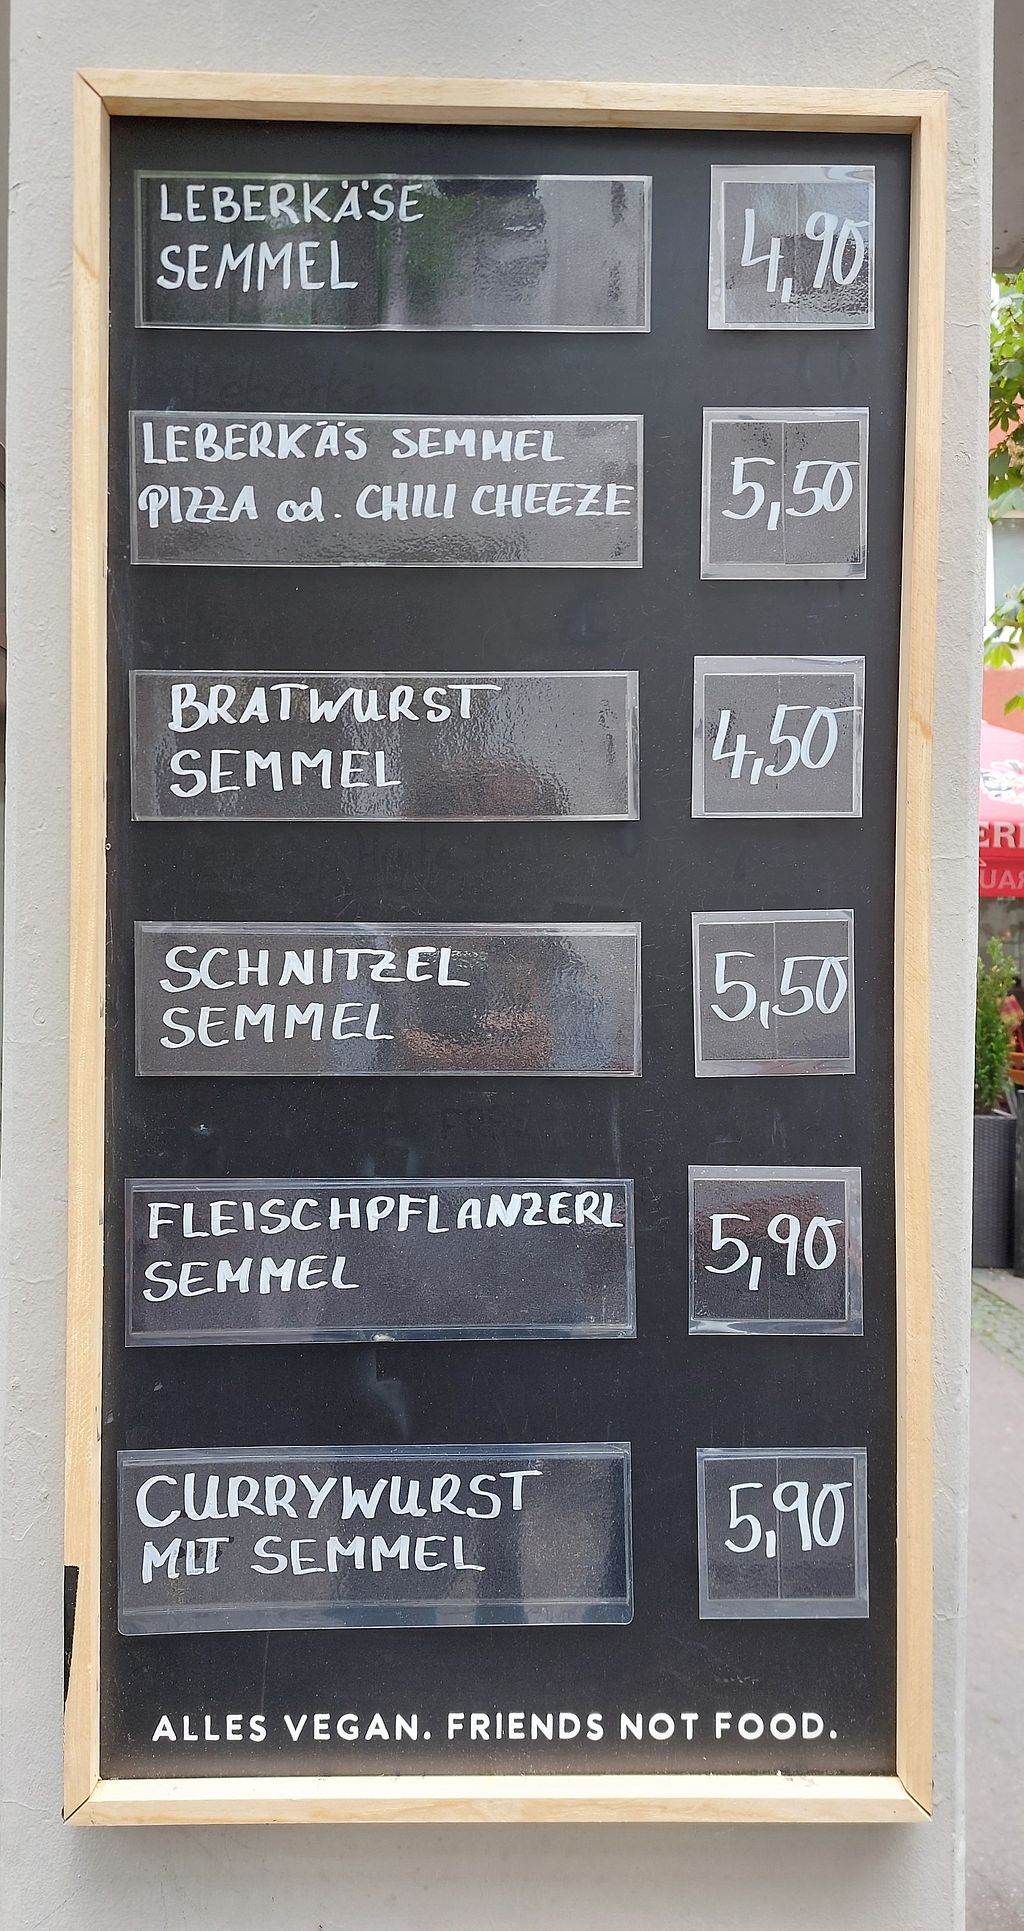 LEBERKÄSE
SEMMEL
4,90
LEBERKÄS SEMMEL
PIZZA od. CHILI CHEEZE
5,50
BRATWURST
SEMMEL
4,50
SCHNITZEL
SEMMEL
5,50
FLEISCHPFLANZERL
SEMMEL
5,90
CURRYWURST
MIT SEMMEL
5,90
ALLES VEGAN. FRIENDS NOT FOOD.